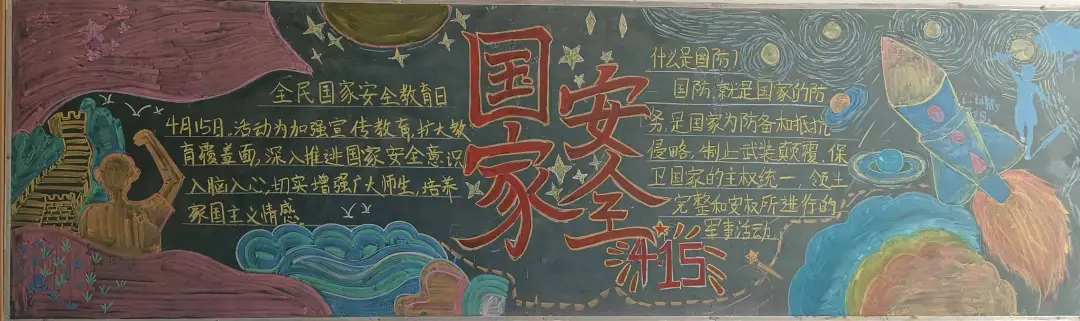 全民国家安全教育日
4月15日,活动为加强宣传教育,扩大教
育覆盖面,深入推进国家安全意识
入脑入心,切实增强广大师生,培养
家国主义情感
国家
安全
4 15
什么是国防?
国防,就是国家的防
务,是国家为防备和抵抗
侵略,制止武装颠覆,保
卫国家的主权统一,领土
完整和安权所进行的
军事活动